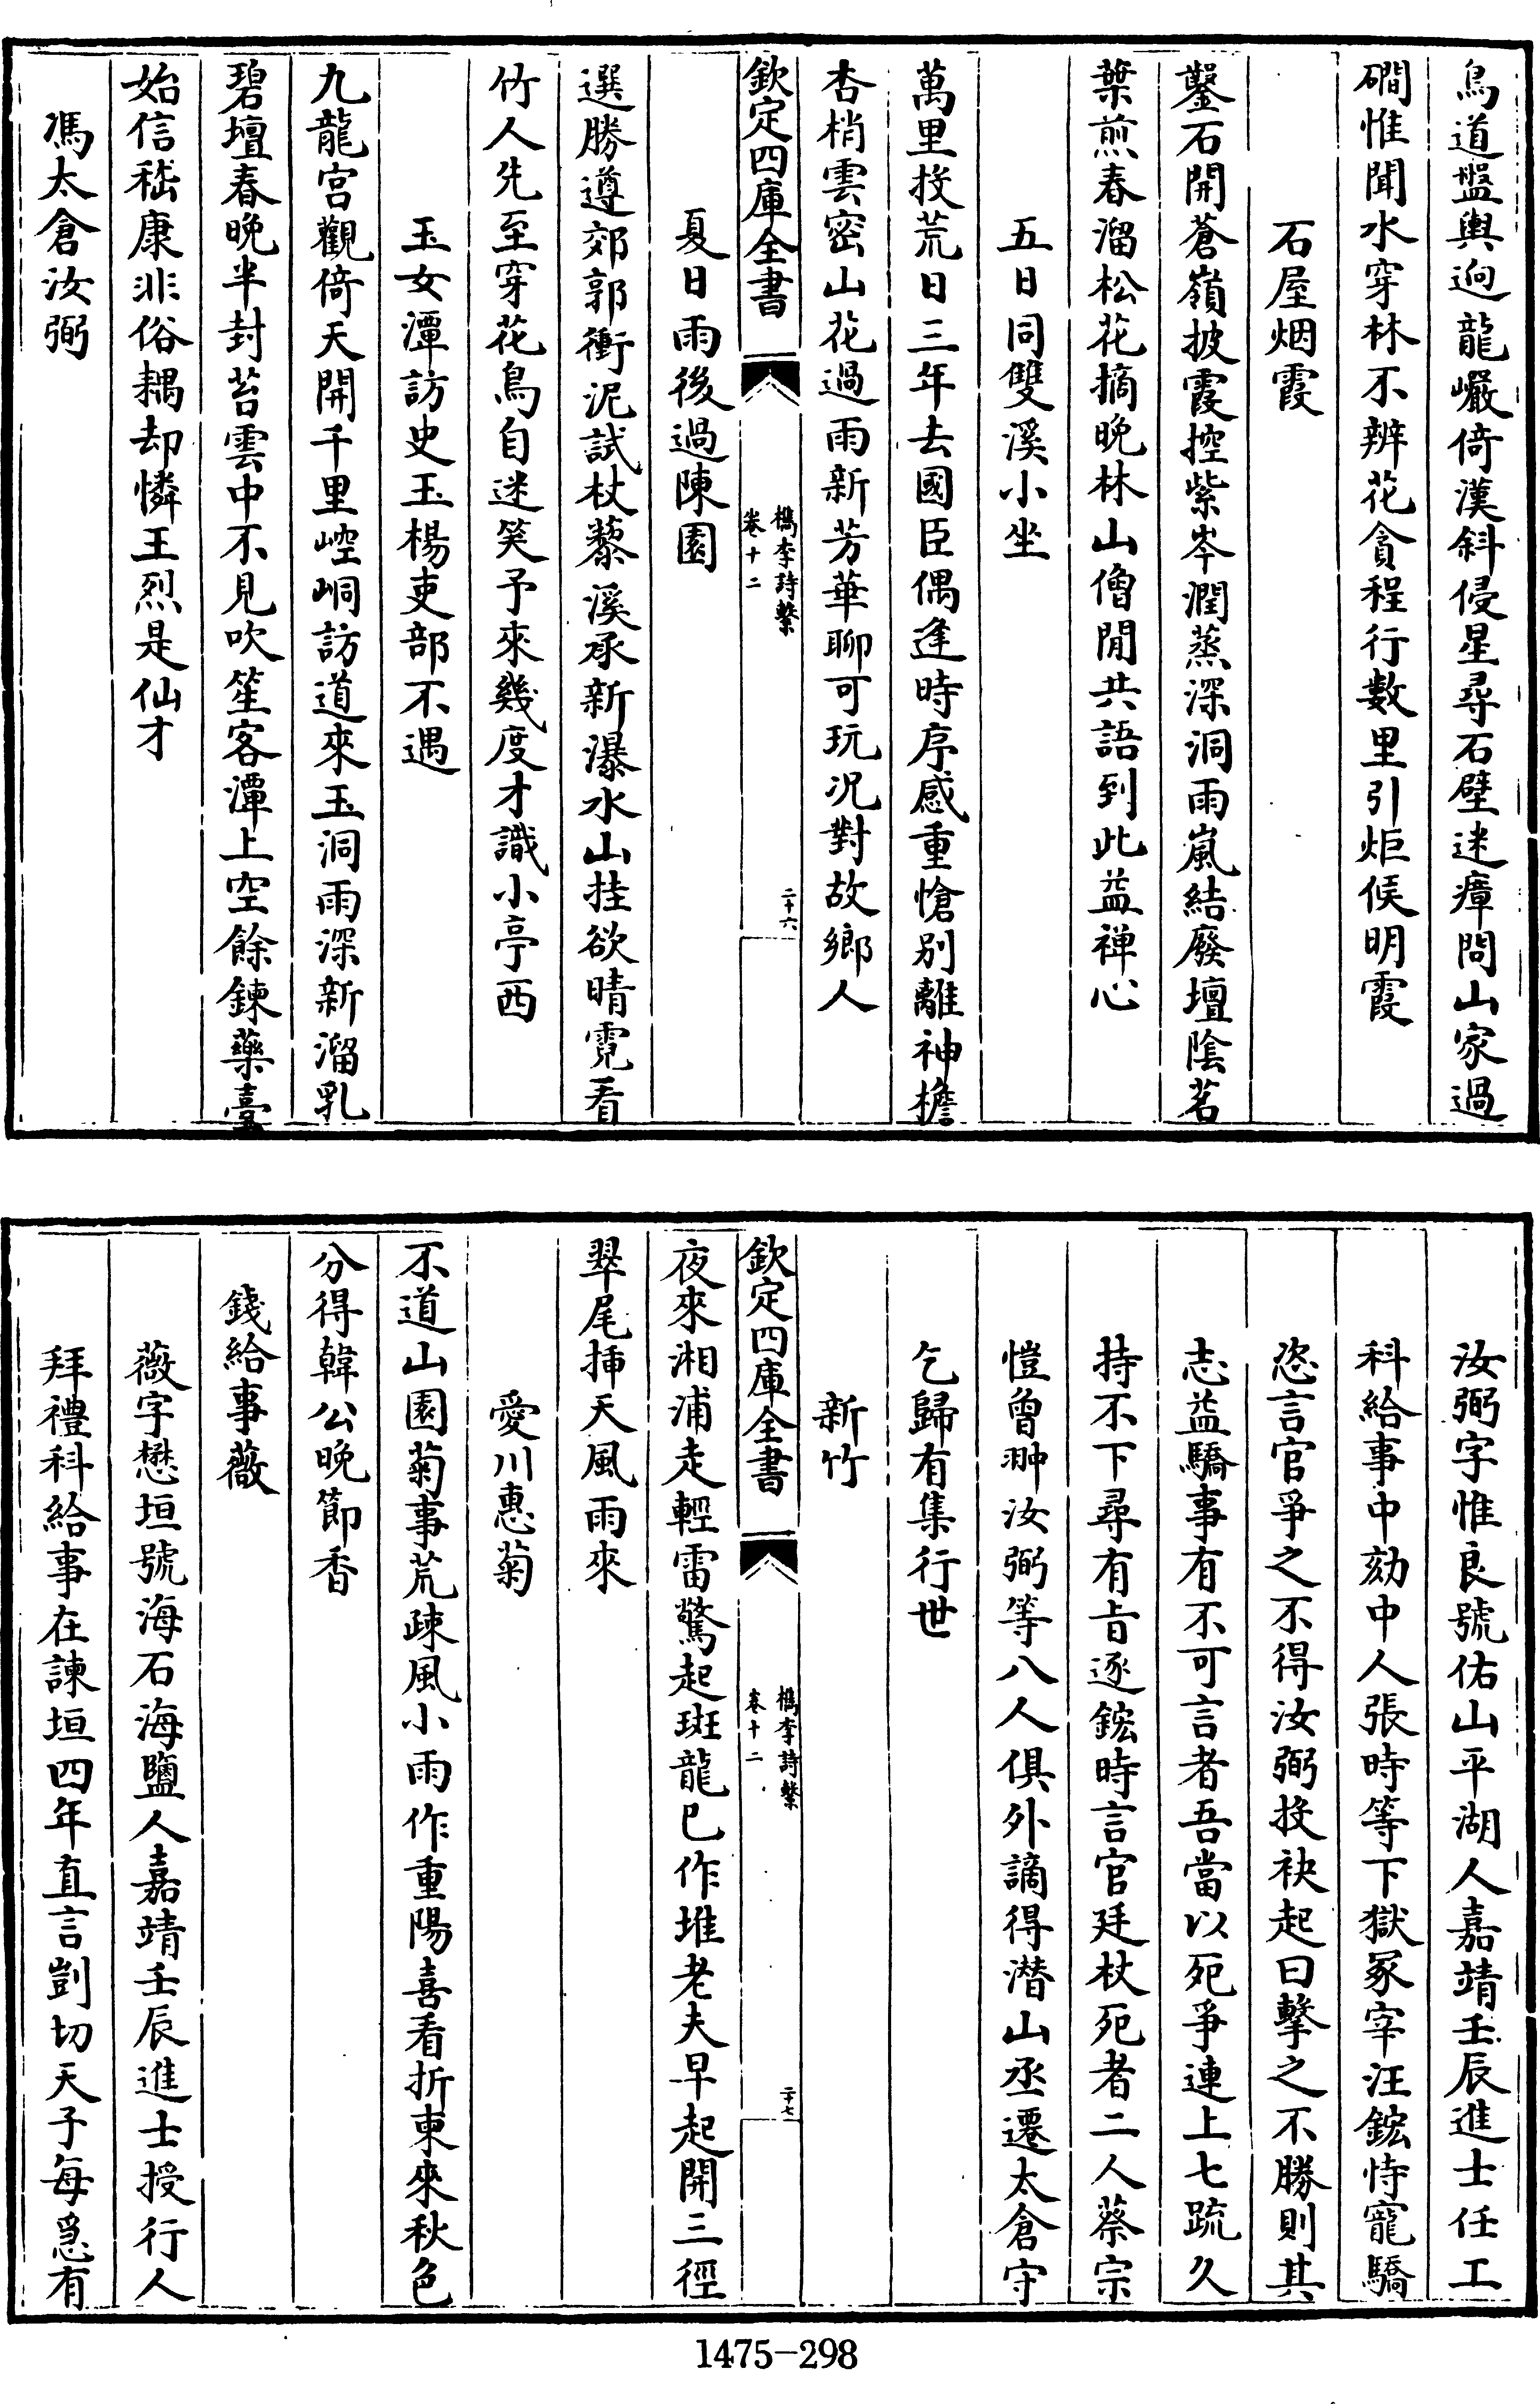 鳥道盤輿逈龍巖倚漢斜侵星尋石壁迷瘴問山家過
磵惟聞水穿林不辨花貪程行數里引炬候明霞
石屋烟霞
鑿石開蒼嶺披霞控紫岑潤蒸深洞雨嵐結廢壇陰茗
葉煎春溜松花摘晚林山僧閒共語到此益禅心
五日同雙溪小坐
萬里投荒日三年去國臣偶逢時序感重愴别離神檐
杏梢雲密山花過雨新芳華聊可玩况對故鄉人
欽定四庫全書
檇李詩繫
卷十二
二十六
夏日雨後過陳園
選勝遵郊郭衝泥試杖藜溪承新瀑水山挂欲晴霓看
竹人先至穿花鳥自迷笑予來幾度才識小亭西
玉女潭訪史玉楊吏部不遇
九龍宫觀倚天開千里崆峒訪道來玉洞雨深新溜乳
碧壇春晚半封苔雲中不見吹笙客潭上空餘鍊藥臺
始信嵇康非俗耦却憐王烈是仙才
馮太倉汝弼
汝弼字惟良號佑山平湖人嘉靖壬辰進士任工
科給事中劾中人張時等下獄冢宰汪鋐恃寵驕
恣言官爭之不得汝弼投袂起曰擊之不勝則其
志益驕事有不可言者吾當以死爭連上七疏久
持不下尋有㫖逐鋐時言官廷杖死者二人蔡宗
愷曾翀汝弼等八人俱外謫得潛山丞遷太倉守
乞歸有集行世
新竹
欽定四庫全書
檇李詩繫
卷十二
二十七
夜來湘浦走輕雷驚起斑龍已作堆老夫早起開三徑
翠尾挿天風雨來
愛川惠菊
不道山園菊事荒疎風小雨作重陽喜看折柬來秋色
分得韓公晚節香
錢給事薇
薇字懋垣號海石海鹽人嘉靖壬辰進士授行人
拜禮科給事在諫垣四年直言剴切天子每憙有